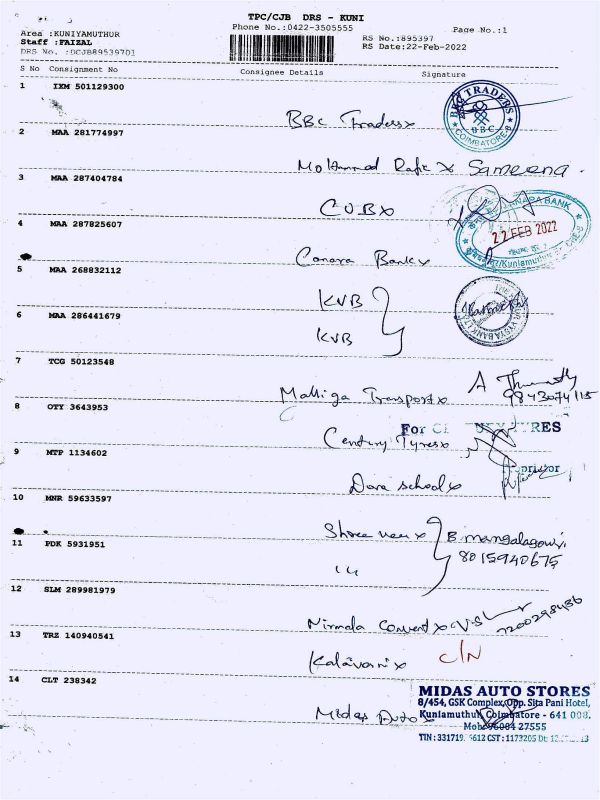 TPC/CJB DRS - KUNI
Phone No.:0422-3505555
Page No.:1
Area :KUNIYAMUTHUR
Staff :FAIZAL
DRS No. :DCJB89539701
RS No.:895397
RS Date:22-Feb-2022
S No Consignment No Consignee Details Signature
1 IXM 501129300
BBC Traders
BBC TRADERS
BBC
COIMBATORE-8
2 MAA 281774997
Mohammed Rafic Sameena
3 MAA 287404784
CUB
4 MAA 287825607
Canara Bank
CANARA BANK
22 FEB 2022
5 MAA 268832112
KVB
6 MAA 286441679
KVB
7 TCG 50123548
Malliga Transport
9843074115
8 OTY 3643953
Century Tyres
For
RES
9 MTP 1134602
Dora school
10 MNR 59633597
Shree
B. mangalagowri
8015940675
11 PDK 5931951
12 SLM 289981979
Nirmala Convent
7200298436
13 TRZ 140940541
Kalaivani C/N
14 CLT 238342
Midas Auto
MIDAS AUTO STORES
8/454, GSK Complex, Opp. Sita Pani Hotel,
Kuniamuthur, Coimbatore - 641 008.
Mob: 96004 27555
TIN : 331719 6612 CST : 1173205 Dt: